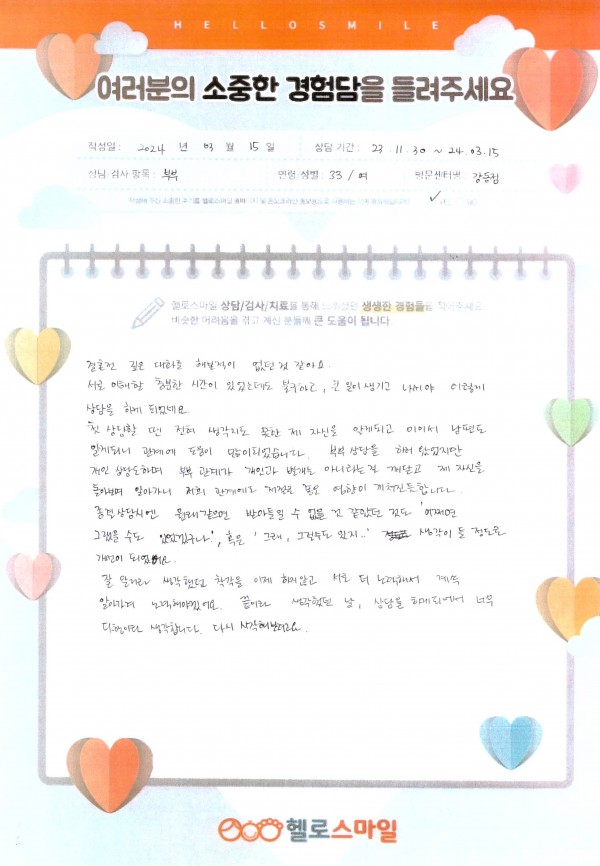 HELLOSMILE
여러분의 소중한 경험담을 들려주세요
작성일 : 2024 년 03 월 15 일 상담 기간 : 23.11.30 ~ 24.03.15
상담/검사 항목 : 부부 연령/성별 : 33 / 여 방문센터명 강동점
헬로스마일 상담/검사/치료를 통해 느끼셨던 생생한 경험들을 적어주세요
비슷한 어려움을 겪고 계신 분들께 큰 도움이 됩니다
결혼전 깊은 대화를 해본적이 없던것 같아요.
서로 이해할 충분한 시간이 있었는데도 불구하고, 큰 일이 생기고 나서야 이렇게
상담을 하게 되었네요.
첫 상담할 땐 전혀 생각지도 못한 제 자신을 알게되고 이어서 남편도
알게되니 관계에 도움이 많이되었습니다. 부부 상담을 하러 왔었지만
개인 상담도하며 부부 관계가 개인과 별개는 아니라는걸 깨닫고 제 자신을
돌아보며 알아가니 저희 관계에도 긍정적 영향이 미쳐진듯합니다.
종결상담시엔 원래같으면 받아들일 수 없을 것 같았던 것도 '어쩌면
그랬을 수도 있었겠구나.', 혹은 '그래, 그럴수도 있지..' 생각이 들 정도로
개선이 되었어요.
잘 알거라 생각했던 착각을 이제 하지않고 서로 더 노력해서 계속
알아가려 노력해야겠어요. 끝이라 생각했던 날, 상담을 하게되어서 너무
다행이라 생각합니다. 다시 시작해보려고요.
헬로스마일